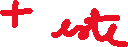 + este